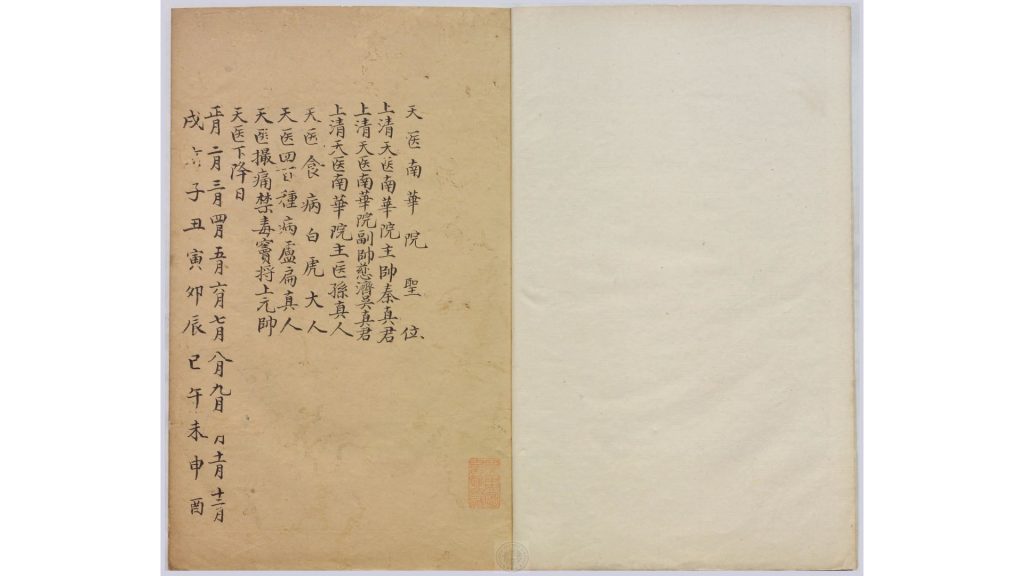 天医南華院聖位
上清天医南華院主帥秦真君
上清天医南華院副帥慈濟吳真君
上清天医南華院主医孫真人
天医食病白虎大人
天医四百種病盧扁真人
天医撮痛禁毒竇将上元帥
天医下降日
正月 二月 三月 四月 五月 六月 七月 八月 九月 月 十一月 十二月
戌 子 丑 寅 卯 辰 巳 午 未 申 酉